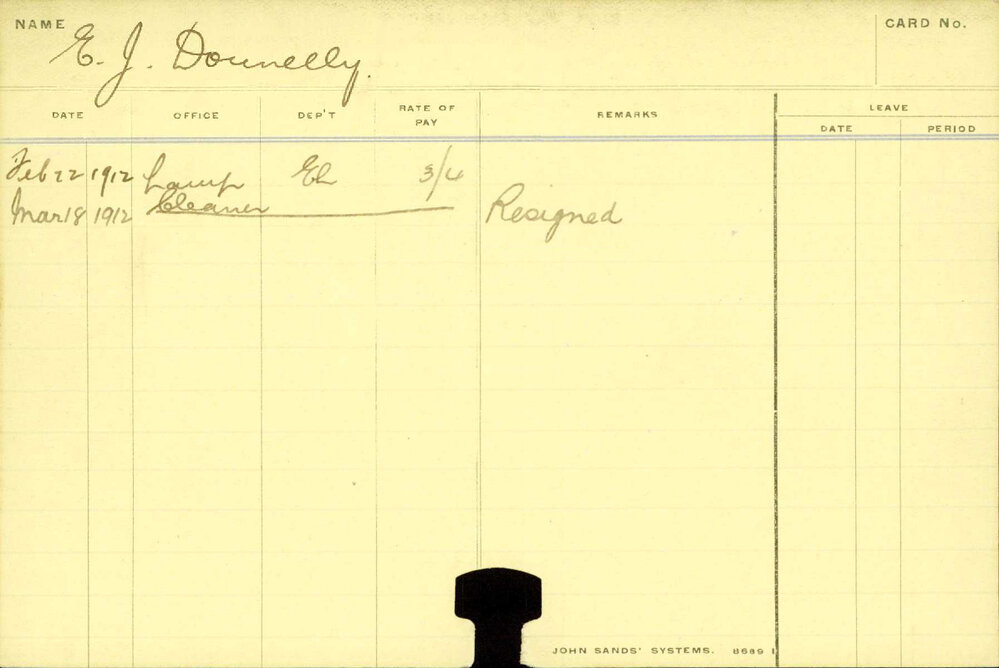 NAME E. J. Donnelly. CARD No.
DATE OFFICE DEP'T RATE OF PAY REMARKS LEAVE
DATE PERIOD
Feb 22 1912 Lamp El 3/4
Mar 18 1912 Cleaner Resigned
JOHN SANDS' SYSTEMS. 8689